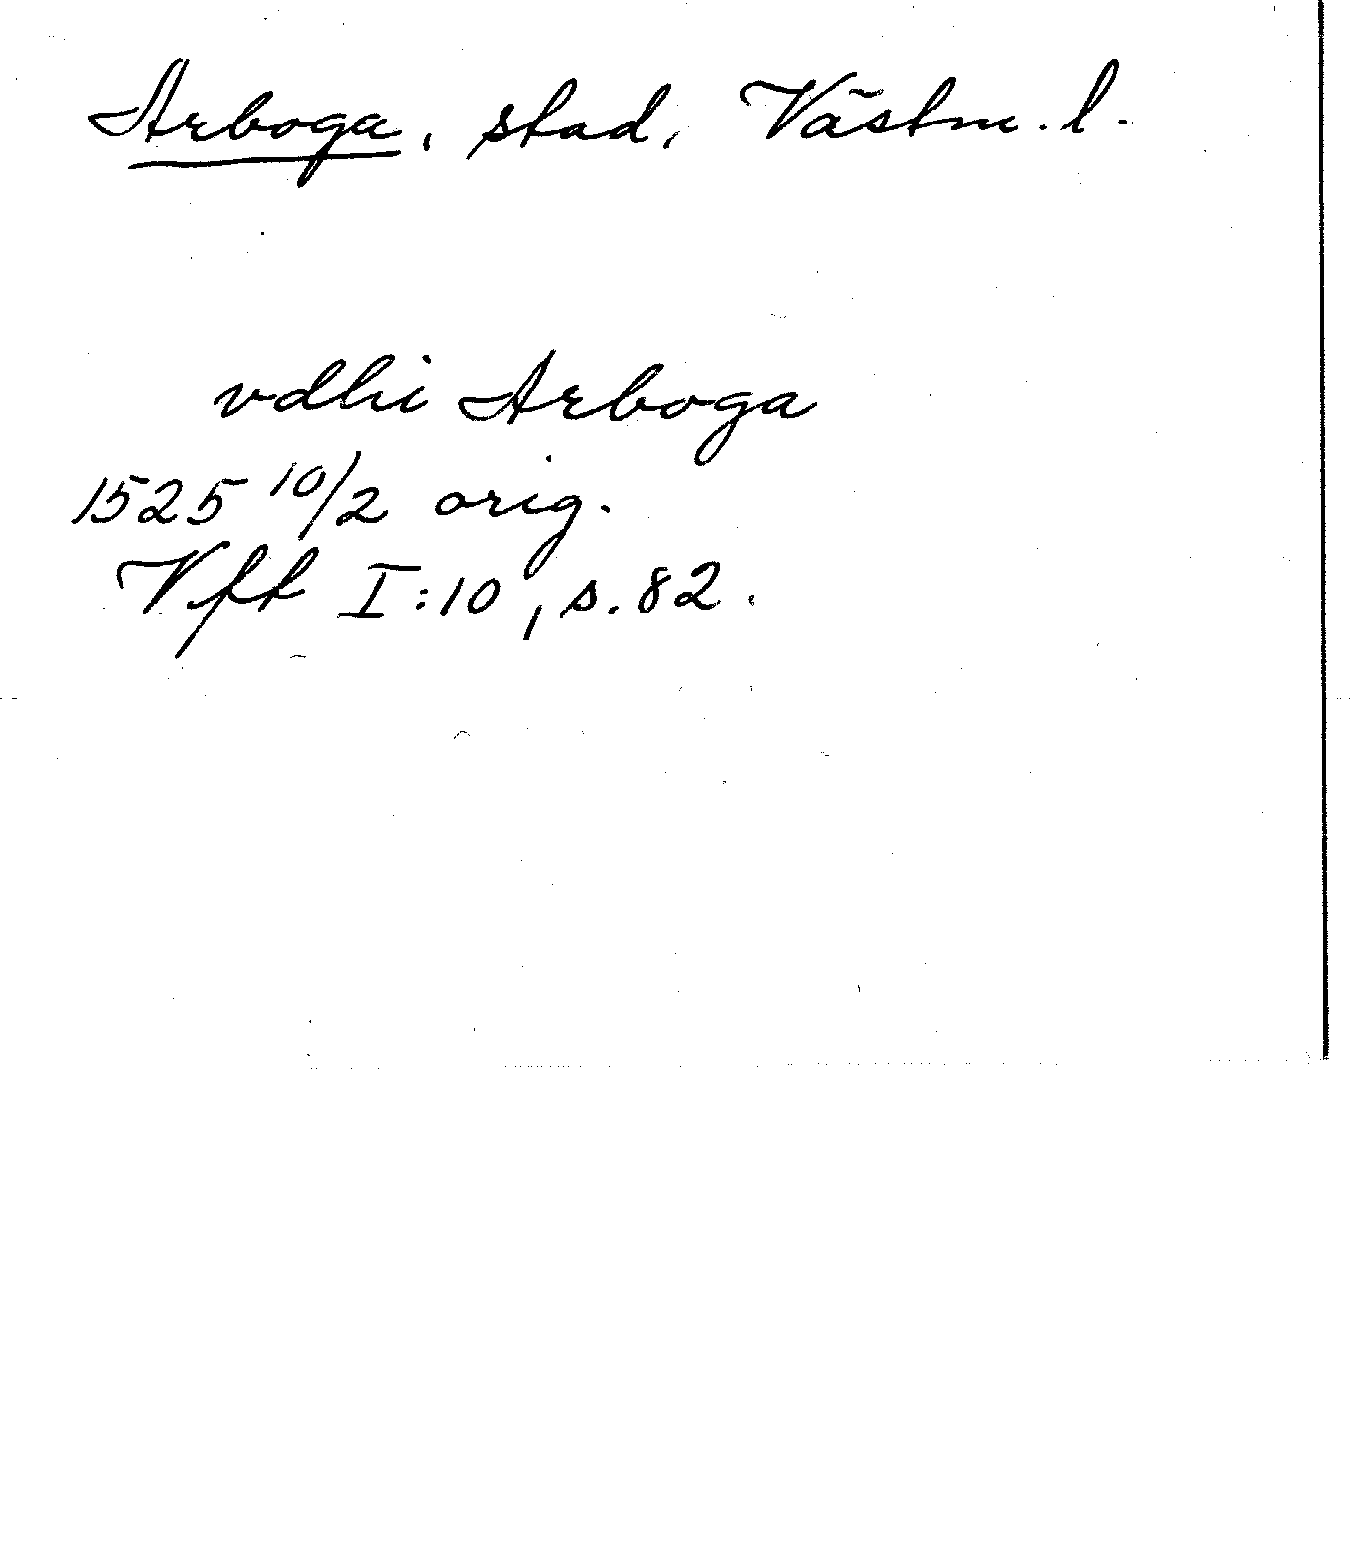 Arboga, stad, Västm. l.
vdhi Arboga
1525 10/2 orig.
Vft I:10, s. 82.